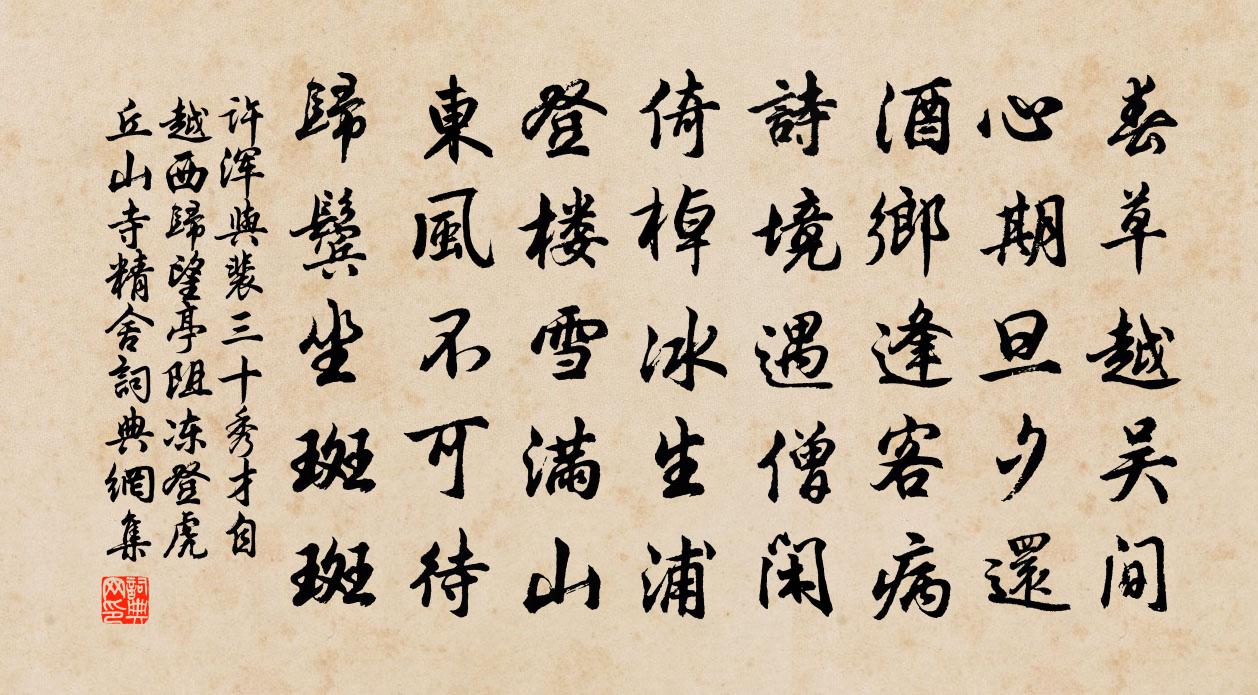 春草越吴间
心期旦夕還
酒鄉逢客病
詩境遇僧閑
倚棹冰生浦
登楼雪满山
東風不可待
歸鬓坐斑斑
许浑與裴三十秀才自
越西歸望亭阻冻登虎
丘山寺精舍詞典網集
詞典
网印